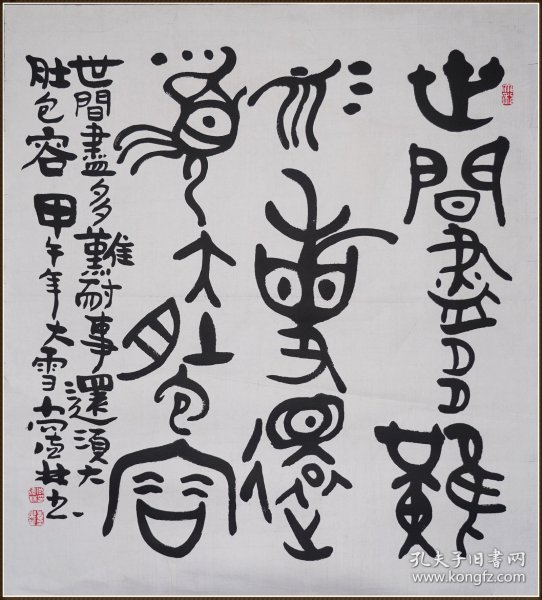 世間盡多難
耐事還
須大肚包容
世間盡多難耐事還須大
肚包容 甲午年大雪 林书
孔夫子旧书网
www.kongfz.com